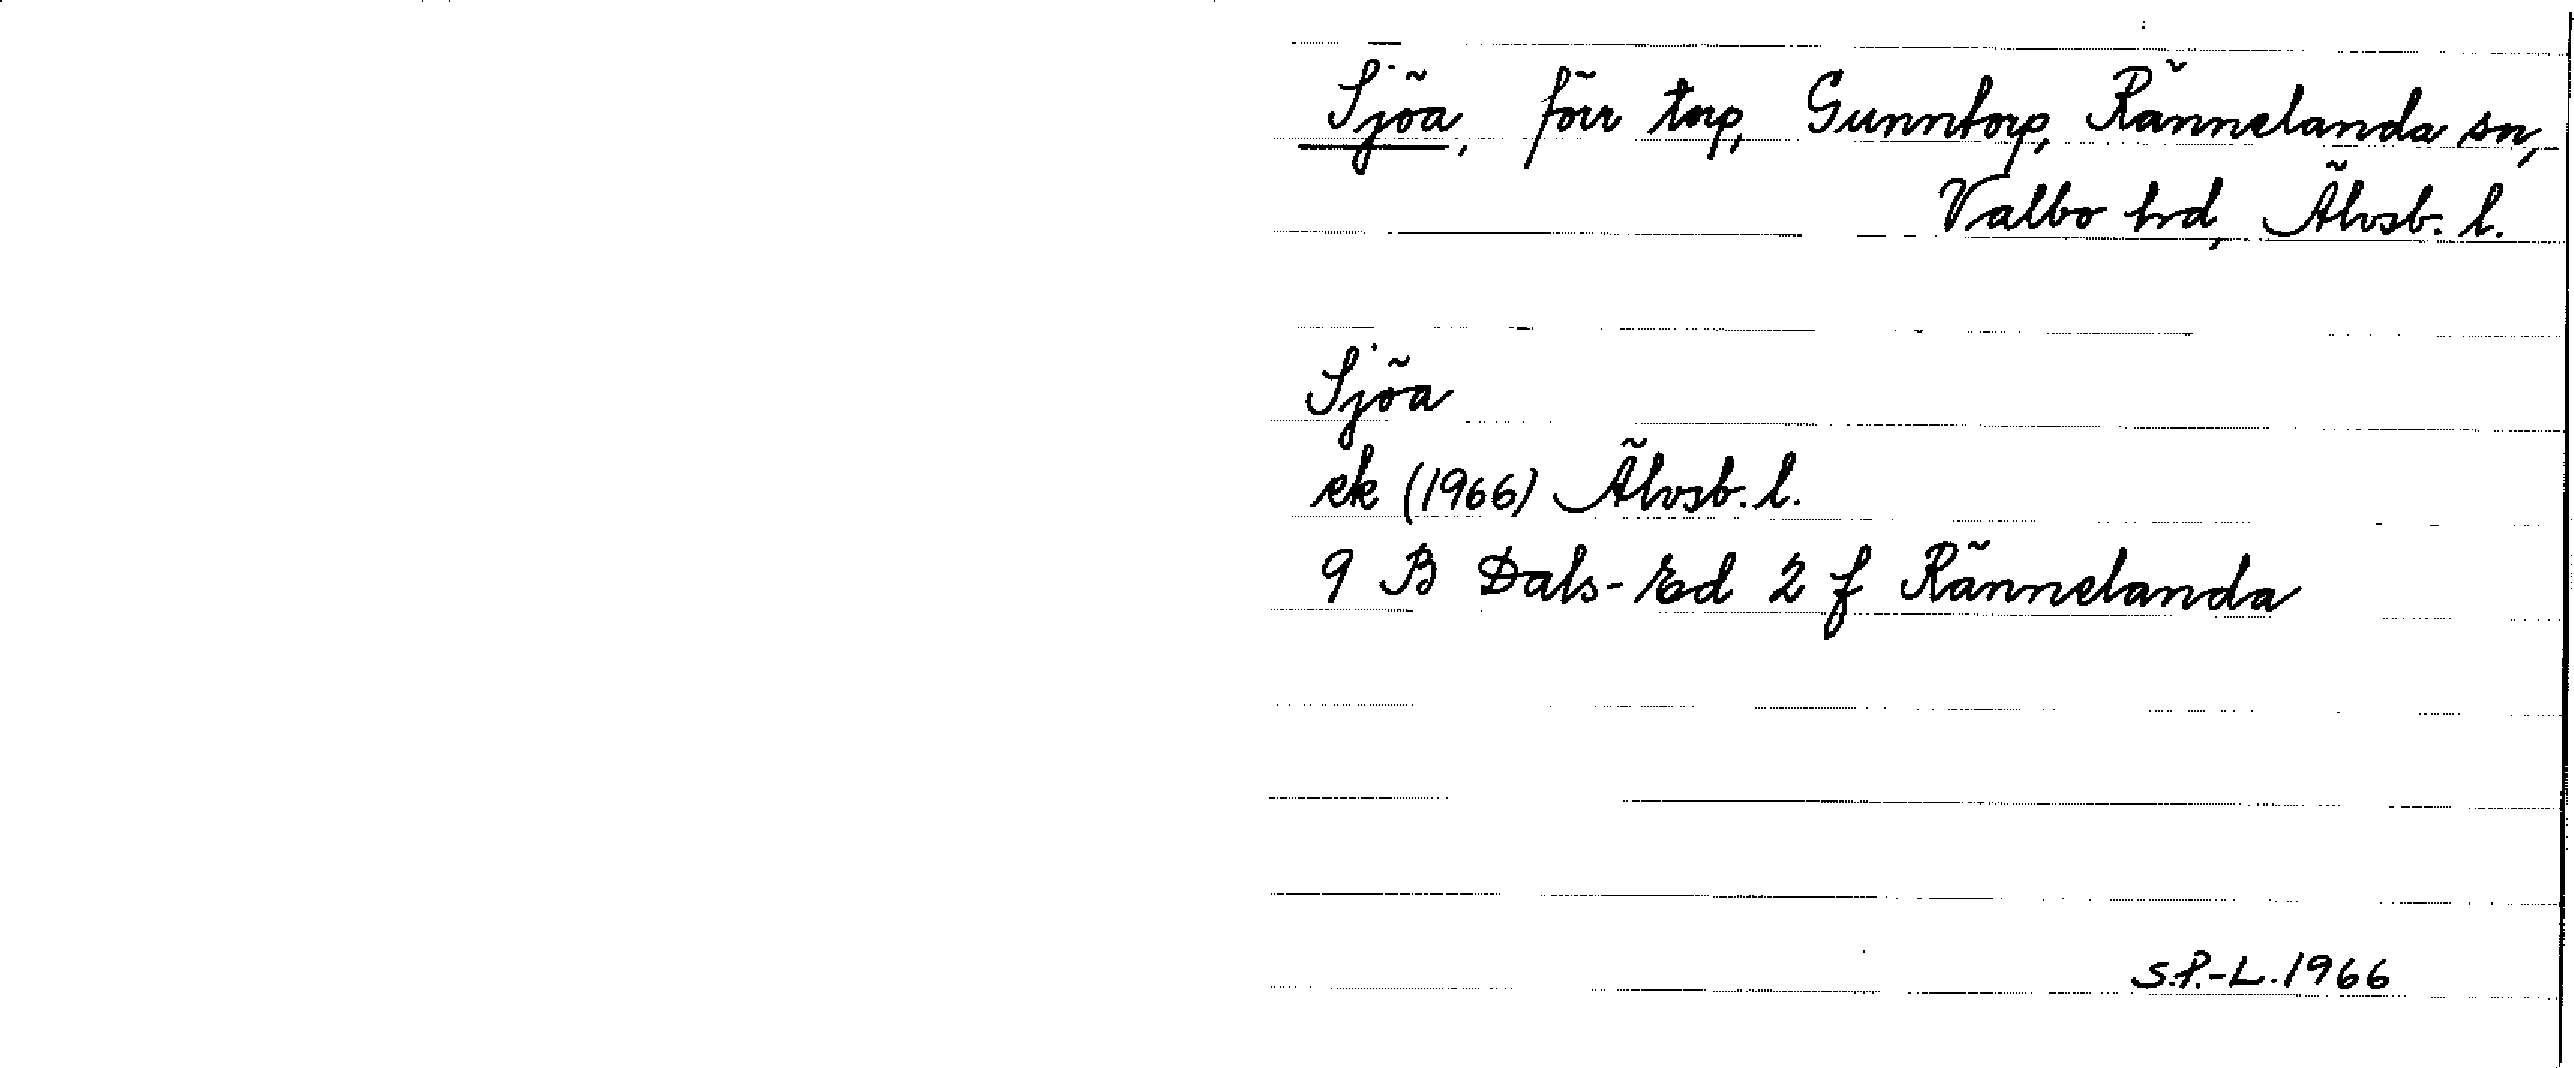 Sjöa, förr torp, Gunntorp, Rännelanda sn,
Valbo hd, Älvsb. l.
Sjöa
ek (1966) Älvsb. l.
9 B Dals-Ed 2 f Rännelanda
S.P.-L. 1966